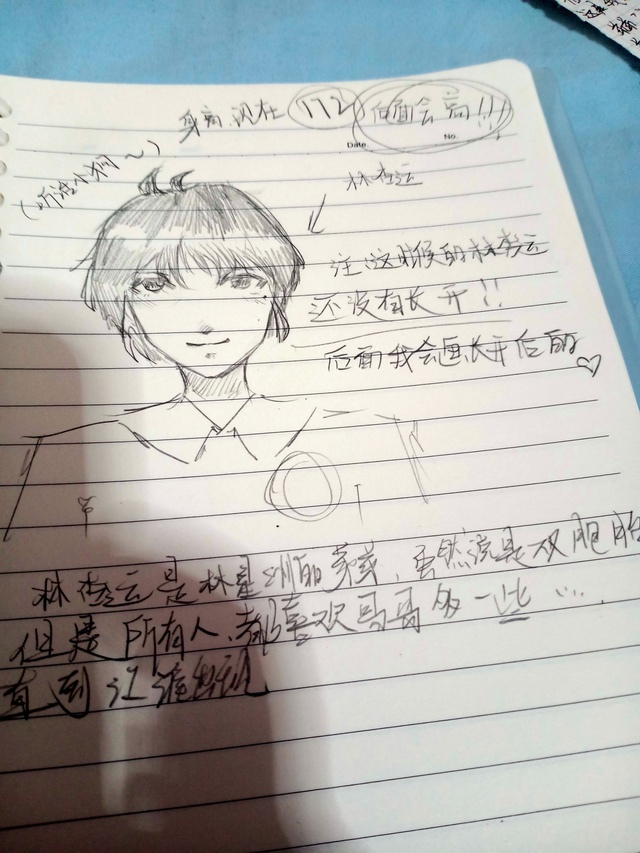 身高、现在 172 后面会高!!!
Date.
No.
(听话小狗~)
林杏运
注:这时候的林杏运
还没有长开!!
后面我会画长开后的♡
林杏运是林星洲的弟弟,虽然说是双胞胎
但是所有人、都喜欢哥哥多一些…
直到江 出现